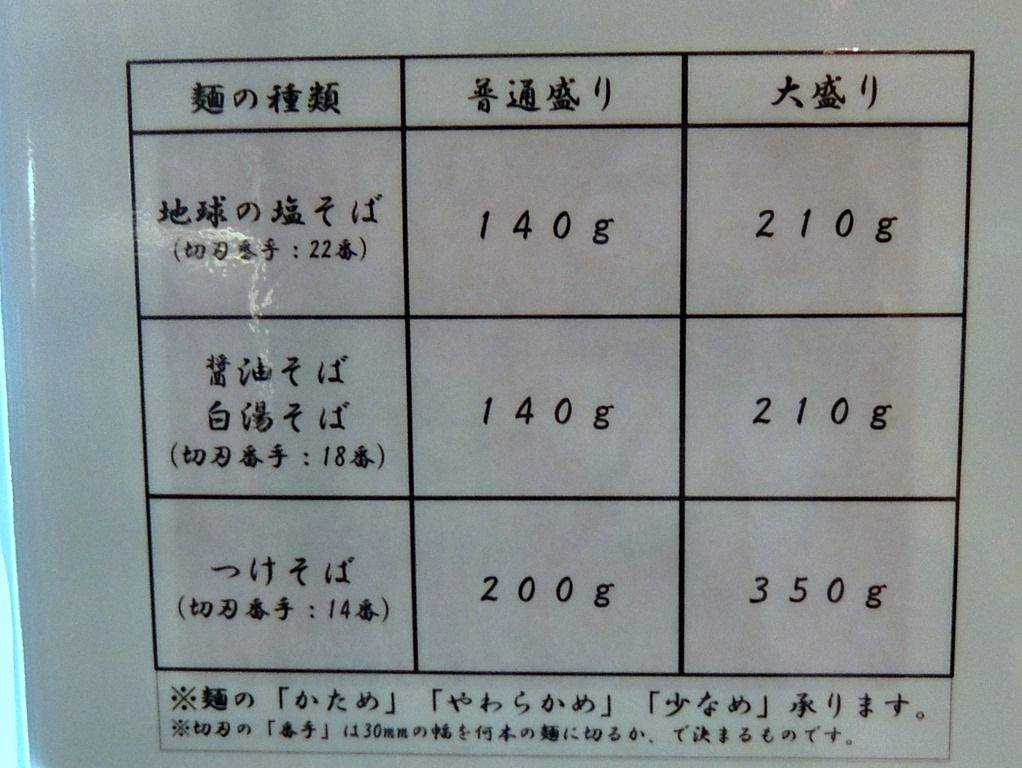 麺の種類 普通盛り 大盛り
地球の塩そば
(切刃番手：22番)
１４０ｇ ２１０ｇ
醤油そば
白湯そば
(切刃番手：18番)
１４０ｇ ２１０ｇ
つけそば
(切刃番手：14番)
２００ｇ ３５０ｇ
※麺の「かため」「やわらかめ」「少なめ」承ります。
※切刃の「番手」は30mmの幅を何本の麺に切るか、で決まるものです。